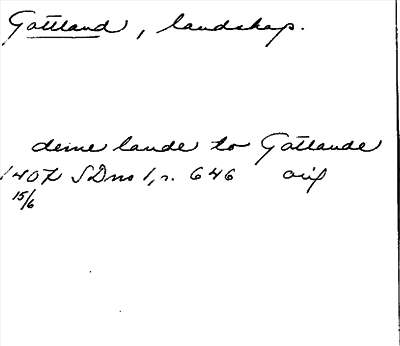 Gottland, landskap.
deme lande to Gotlande
1407 SDns 1, s. 646 orig
15/6